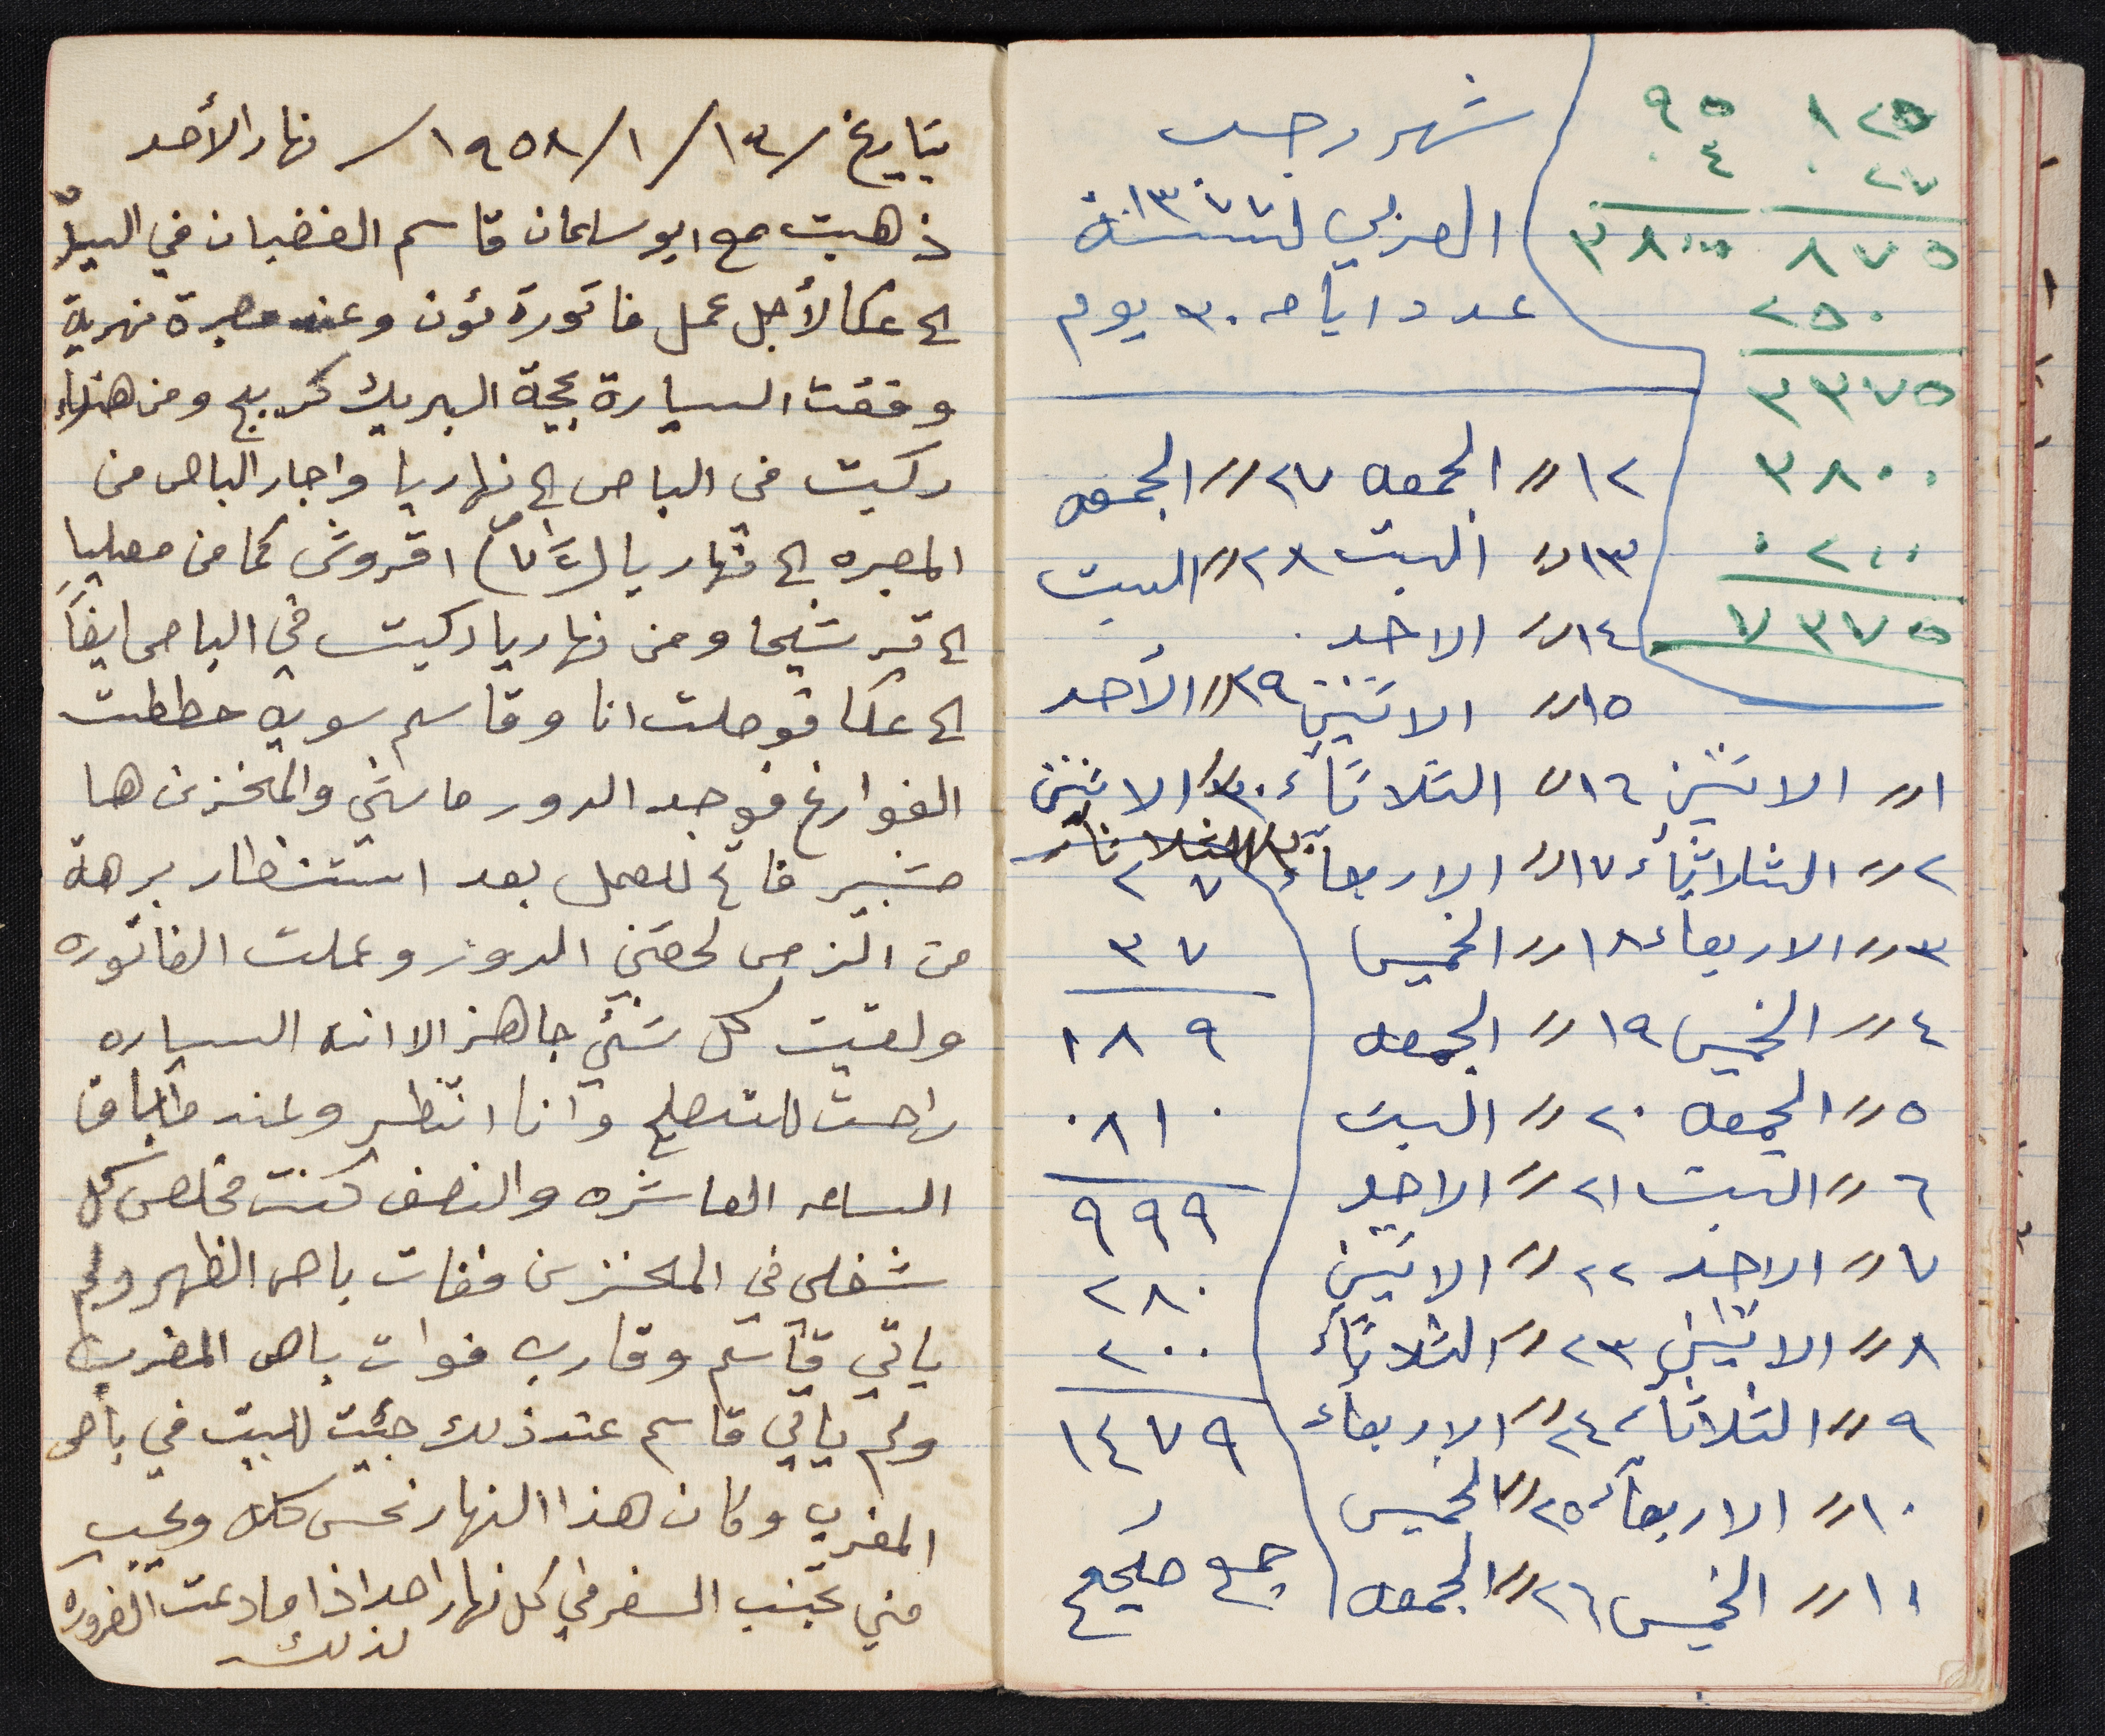 شهر رجب
العربي لسنة ١٣٧٧
عدد ايامه ٣٠ يوم
١٢٥ ٩٥
٢٧ ٠ ٤ ٠
٨٧٥ ٣٨٠٠
٢٥٠
٣٣٧٥
٣٨٠٠
٠٢٠٠
٧٣٧٥
١٢〃 الجمعه ٢٧〃 الجمعه
١٣〃 السبت ٢٨〃 السبت
١٤〃 الاحد
١٥〃 الاثنين ٢٩〃 الأحد
١〃 الاثنين ١٦〃 الثلاثاء ٣٠〃 الاثنين
٢〃 الثلاثاء ١٧〃 الاربعاء الثلاثاء
٢٧
٣〃 الاربعاء ١٨〃 الخميس
٣٧
٤〃 الخميس ١٩〃 الجمعه
١٨٩
٥〃 الجمعه ٢٠〃 السبت
٠٨١٠
٦〃 السبت ٢١〃 الاحد
٩٩٩
٧〃 الاحد ٢٢〃 الاثنين
٢٨٠
٨〃 الاثنين ٢٣〃 الثلاثاء
٢٠٠
٩〃 الثلاثاء ٢٤〃 الاربعاء
١٤٧٩
١٠〃 الاربعاء ٢٥〃 الخميس
١١〃 الخميس ٢٦〃 الجمعه
جمع صحيح
بتاريخ /١٢/١/١٩٥٨/ نهار الأحد
ذهبت مع ابو سلمان قاسم الغضبان في
الى عكا لأجل عمل فاتورة مؤن وعند معبرة نهرية
وقفت السيارة بحجة البريك كربج ومن هناك
ركبت في الباص الى نهاريا واجار الباص من
المعبره الى نهاريا قروش كما من معليا
الى ترشيحا ومن نهاريا ركبت في الباص ايضاً
الى عكا فوصلت انا وقاسم سويه حططت
الفوارغ فوجد الدور ماشي والمخزن ها
فاتح للعمل بعد استنظار برهة
من الزمن لحقني الدور وعملت الفاتوره
ولقيت كل شئي جاهز الا انه السياره
راحت للتصليح وانا انتظر وعند
الساعه العاشره والنصف كنت مخلص كل
شغلي في المخزن ففات باص الظهر ولم
ياتي قاسم وقارب فوات باص المغرب
ولم ياتي قاسم عند ذلك جئيت للبيت في باص
المغرب وكان هذا النهار نحس كله ويجب
مني تجنب السفر في كل نهار احد اذا ما دعت الضروره
لذلك